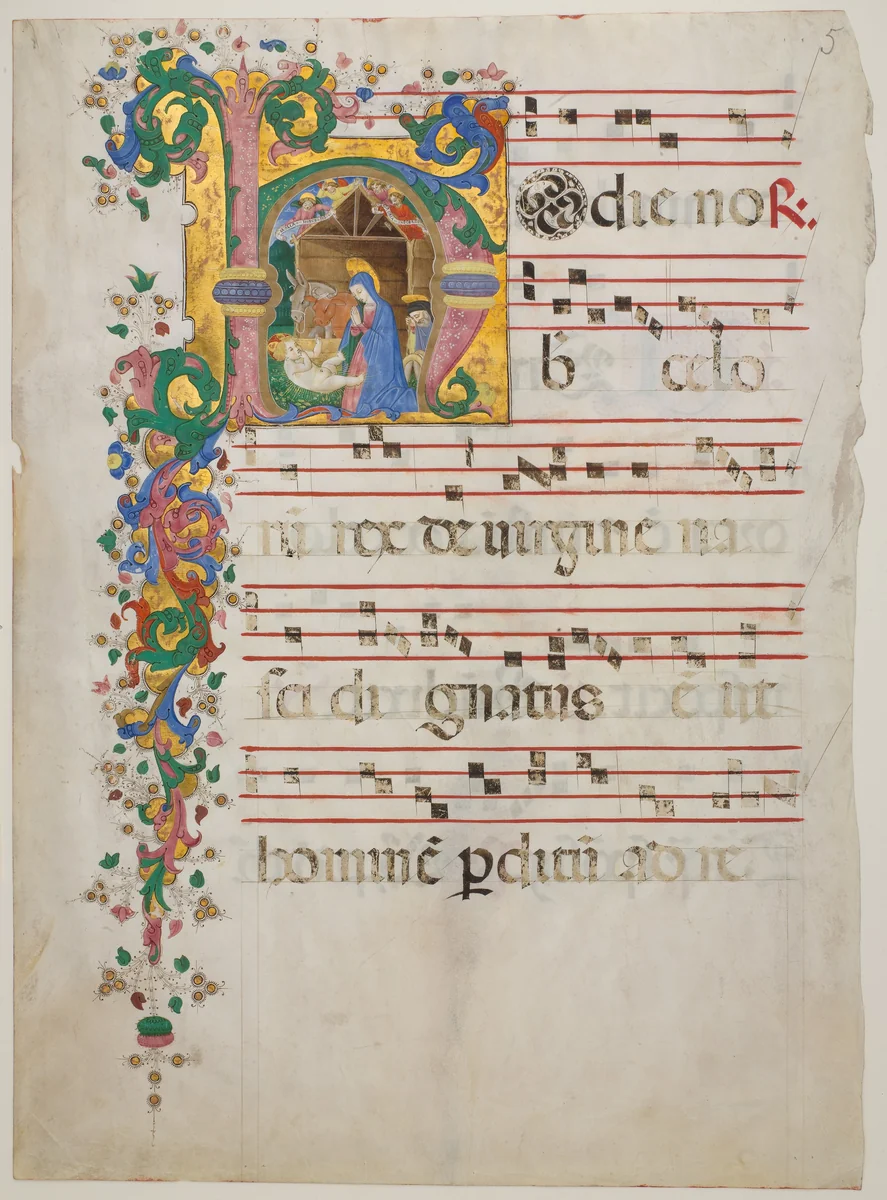 5
Hodie no R:.
b̄ celo
rū rex de uirgine na
sci di gnatus ē ut
hominē ꝑditū ad re